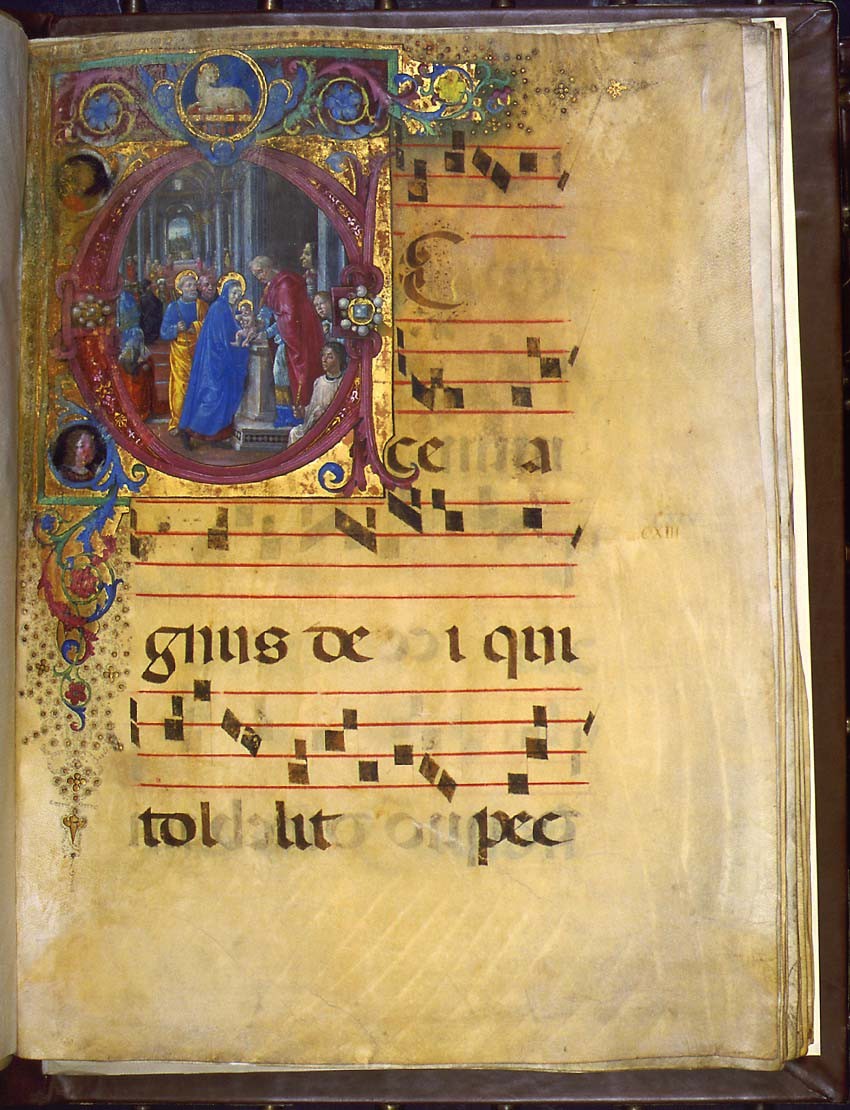 E C
ce a
CXIII
gnus de i qui
tol lit pec